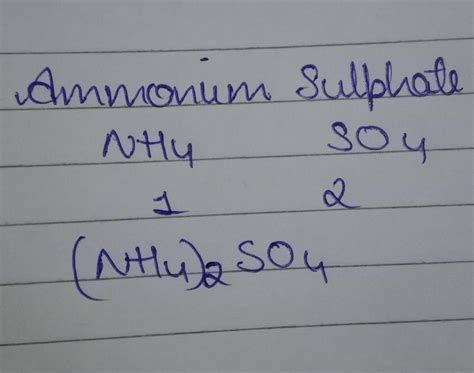 Ammonium Sulphate
NH4 SO4
1 2
(NH4)2SO4